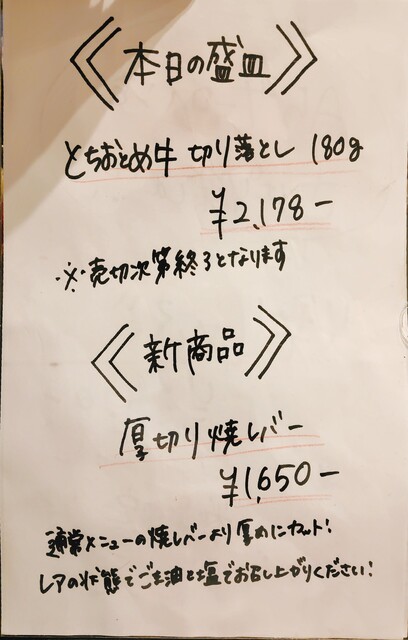 《本日の盛皿》
とちおとめ牛 切り落とし 180g
¥2,178−
※売切次第終了となります
《新商品》
厚切り焼レバー
¥1,650−
通常メニューの焼レバーより厚めにカット!
レアの状態でごま油と塩でお召し上がりください!